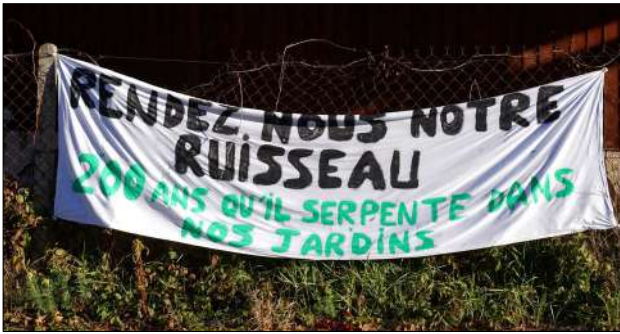 RENDEZ. NOUS NOTRE
RUISSEAU
200 ANS QU'IL SERPENTE DANS
NOS JARDINS